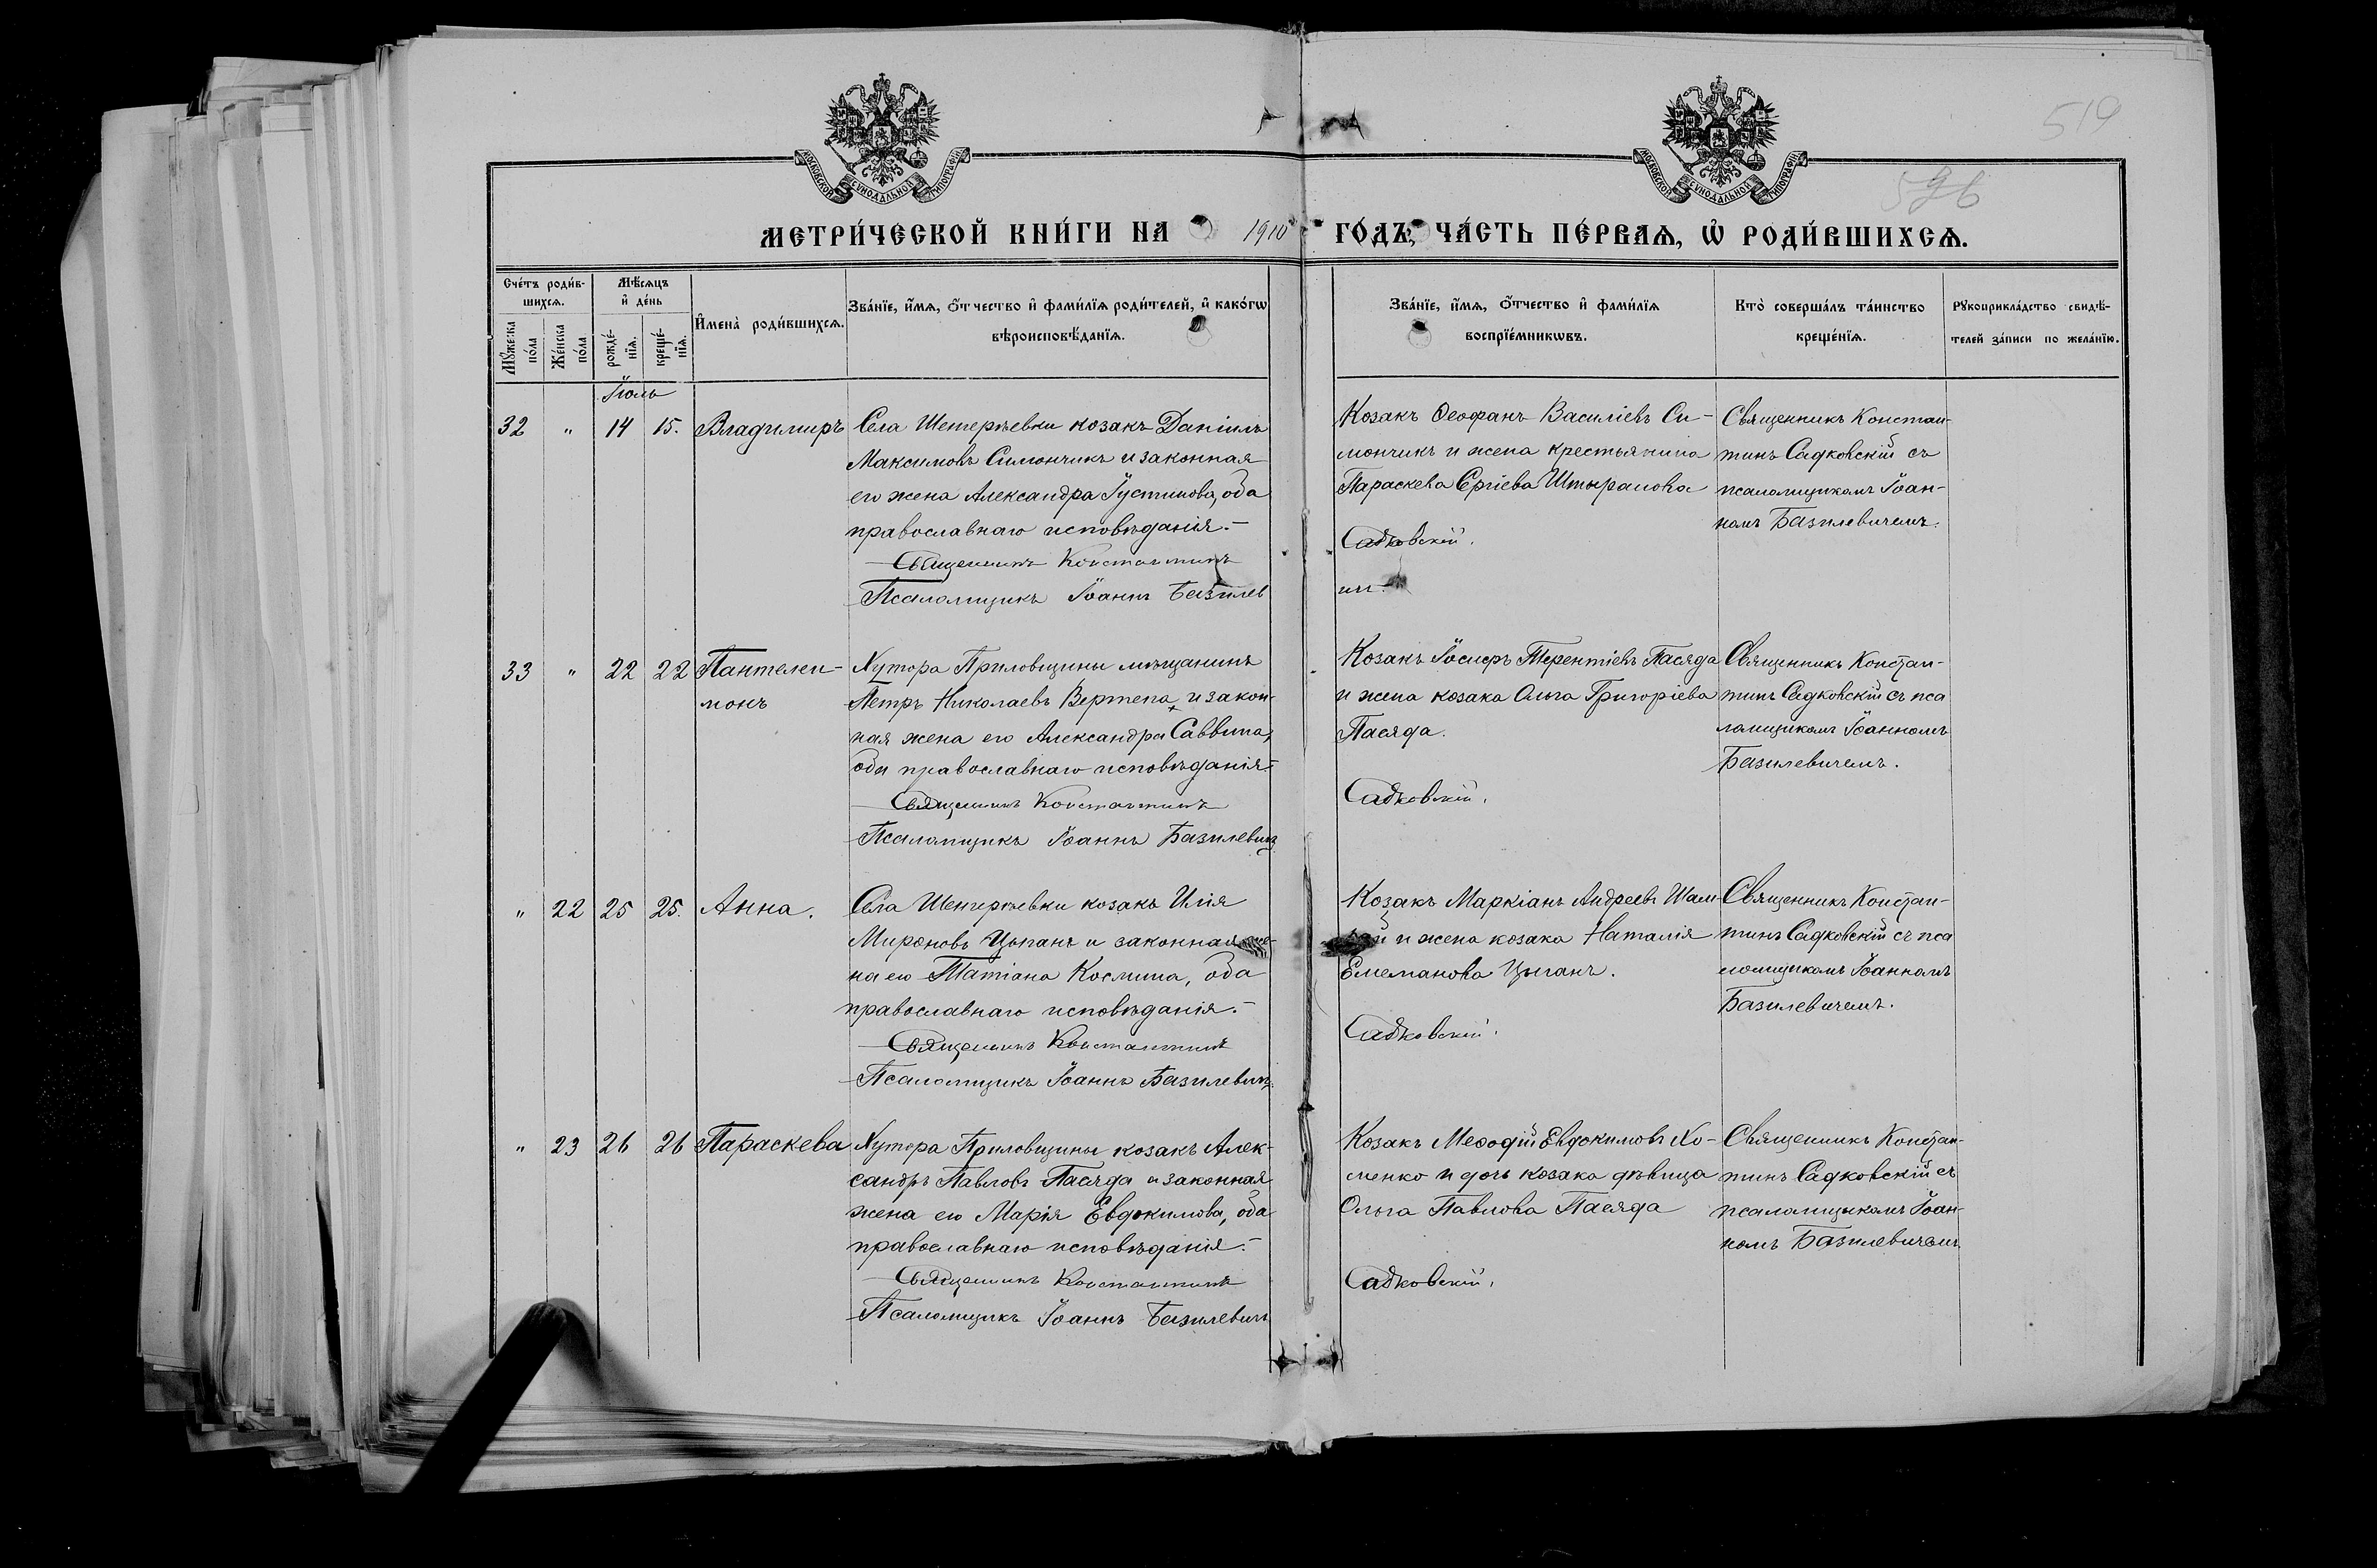 519
526
МОСКОВСКОЙ СѴНОДАЛЬНОЙ ТИПОГРАФІИ
МОСКОВСКОЙ СѴНОДАЛЬНОЙ ТИПОГРАФІИ
МЕТРИ́ЧЕСКОЙ КНИ́ГИ НА 1910 ГО́ДЪ, ЧА́СТЬ ПЕ́РВАѦ, Ѡ҆ РОДИ́ВШИХСѦ.
Сче́тъ роди́в-
шихсѧ.
Мꙋ́жеска по́ла
Же́нска по́ла
Мѣ́сѧцъ
и҆ де́нь
рожде́-
нїѧ.
креще́-
нїѧ.
И҆мена̀ роди́вшихсѧ.
Зва́нїе, и҆́мѧ, ѻ҆́тчество и҆ фами́лїѧ роди́телей, и҆ како́гѡ
вѣроисповѣ́данїѧ.
Зва́нїе, и҆́мѧ, ѻ҆́тчество и҆ фами́лїѧ
воспрїе́мникѡвъ.
Кто̀ соверша́лъ та́инство
креще́нїѧ.
Рꙋкоприкла́дство свидѣ́-
телей за́писи по жела́нїю.
Іюль
32 " 14 15. Владимиръ
Села Шетеръевки козакъ Даніилъ
Максимовъ Симончикъ и законная
его жена Александра Іустинова, оба
православнаго исповѣданія.-
Священникъ Константинъ
Псаломщикъ Іоаннъ Базилев
Козакъ Ѳеофанъ Василіевъ Си-
мончикъ и жена крестьянина
Параскева Сргіева Штыранова
Садковскій.
ичъ.
Священникъ Констан-
тинъ Садковскій съ
псаломщикомъ Іоан-
номъ Базилевичемъ.
33 " 22 22 Пантелеи-
монъ
Хутора Приловщины мѣщанинъ
Петръ Николаевъ Вертепа и закон-
ная жена его Александра Саввина,
оба православнаго исповѣданія.-
Священникъ Константинъ
Псаломщикъ Іоаннъ Базилевичъ
Козакъ Іосифъ Терентіевъ Пасяда
и жена козака Ольга Григоріева
Пасяда.
Садковскій.
Священникъ Констан-
тинъ Садковскій съ пса
ломщикомъ Іоанномъ
Базилевичемъ.
" 22 25 25. Анна.
Села Шетеръевки козакъ Илія
Мироновъ Цыганъ и законная же-
на его Татіана Космина, оба
православнаго исповѣданія.-
Священникъ Константинъ
Псаломщикъ Іоаннъ Базилевичъ.
Козакъ Маркіанъ Андреевъ Шам
и жена козака Наталія
Емеманова Цыганъ.
Садковскій.
Священникъ Констан-
тинъ Садковскій съ пса
ломщикомъ Іоанномъ
Базилевичемъ.
" 23 26 26 Параскева
Хутора Приловщины козакъ Алек-
сандръ Павловъ Пасяда и законная
жена его Марія Евдокимова, оба
православнаго исповѣданія.-
Священникъ Константинъ
Псаломщикъ Іоаннъ Базилевичъ
Козакъ Меѳодій Евдокимовъ Хо-
менко и дочь козака дѣвица
Ольга Павлова Пасяда
Садковскій.
Священникъ Констан-
тинъ Садковскій съ
псаломщикомъ Іоан-
номъ Базилевичемъ